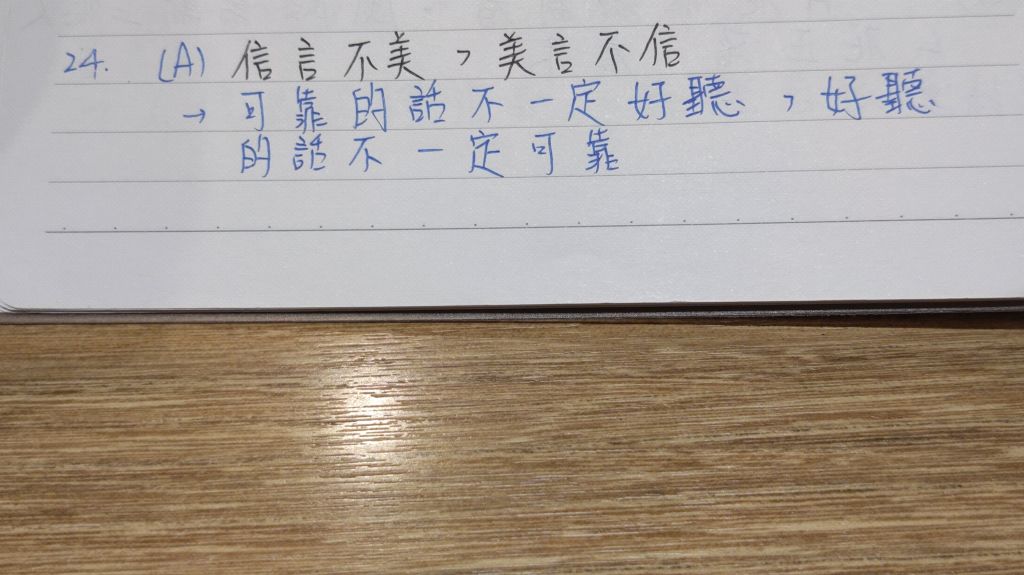 24. (A) 信言不美，美言不信
→ 可靠的話不一定好聽，好聽
的話不一定可靠